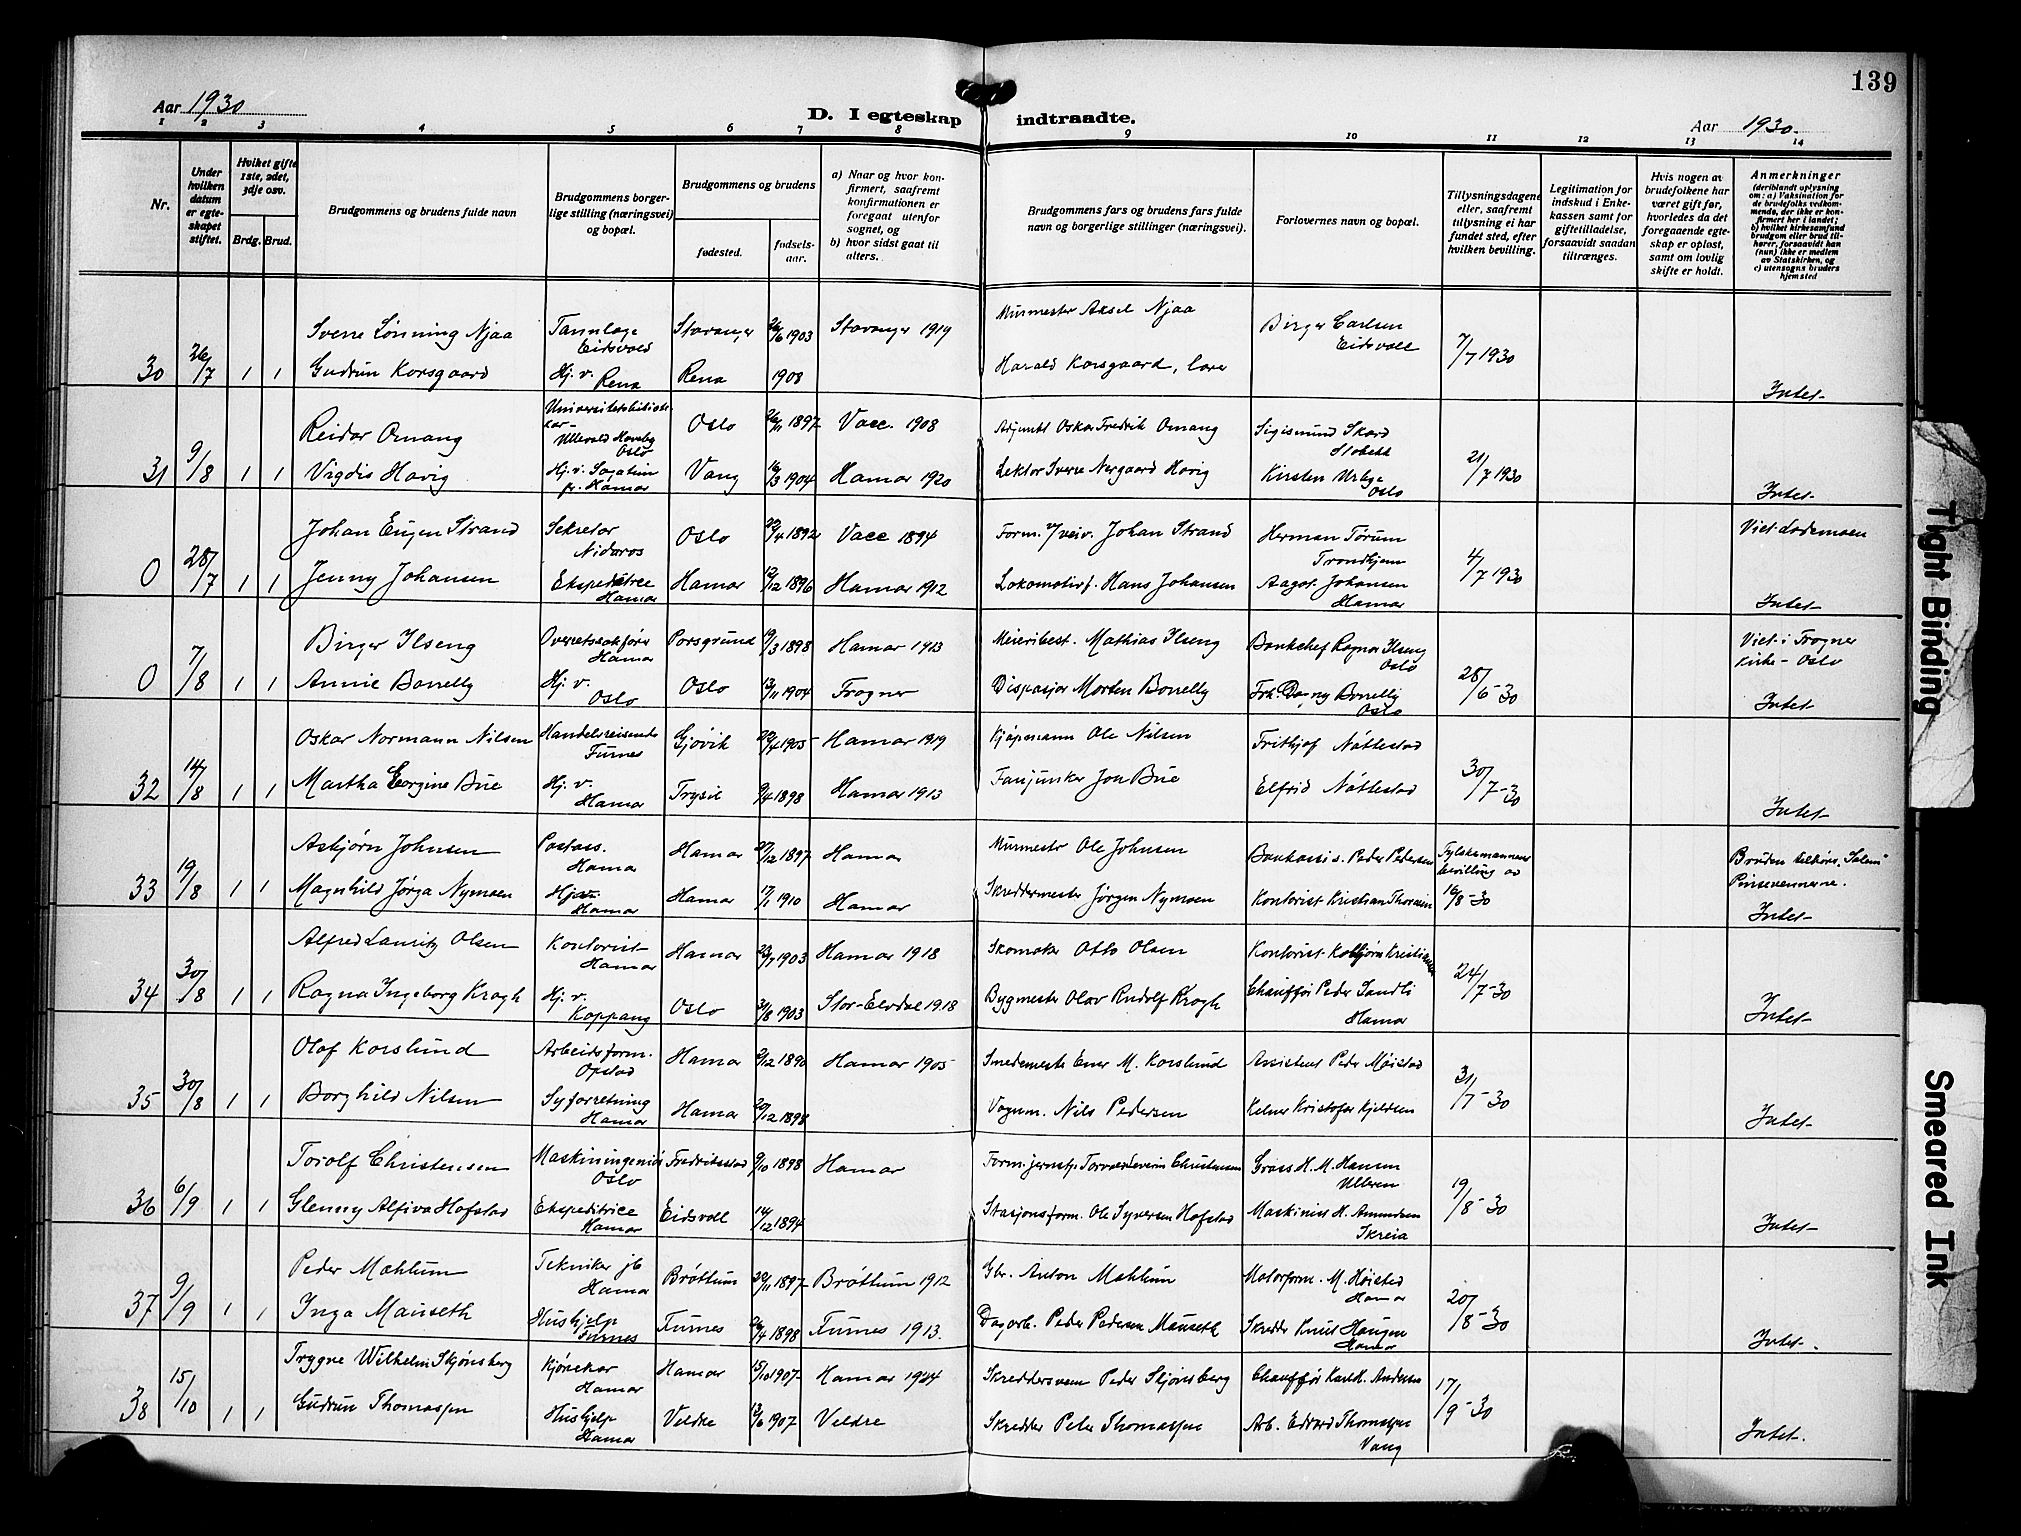 139
Aar 1930
D. I egteskap indtraadte.
Aar 1930.
1 2 3 4 5 6 7 8 9 10 11 12 13 14
Nr.
Under hvilken datum er egteskapet stiftet.
Hviket gifte 1ste, 2det, 3dje osv.
Brdg. Brud.
Brudgommens og brudens fulde navn
Brudgommens borgerlige stilling (næringsvei) og bopæl.
Brudgommens og brudens
fødested.
fødselsaar.
a) Naar og hvor konfirmert, saafremt konfirmationen er foregaat utenfor sognet, og
b) hvor sidst gaat til alters.
Brudgommens fars og brudens fars fulde navn og borgerlige stillinger (næringsvei).
Forlovernes navn og bopæl.
Tillysningsdagene eller, saafremt tillysning ei har fundet sted, efter hvilken bevilling.
Legitimation for indskud i Enkekassen samt for giftetilladelse, forsaavidt saadan tiltrænges.
Hvis nogen av brudefolkene har været gift før, hvorledes da det foregaaende egteskap er opløst, samt om lovlig skifte er holdt.
Anmerkninger
(deriblandt oplysning om: a) Vaksination for de brudefolks vedkommende, der ikke er konfirmert her i landet; b) hvilket kirkesamfund brudgom eller brud tilhører, forsaavidt han (hun) ikke er medlem av Statskirken, og c) utensogns bruders hjemsted
Sverre Lønning Njaa Tannlæge Eidsvold Stavanger 26/6 1903 Stavanger 1919 Murmester Aksel Njaa Birger Carlsen Eidsvoll
30 26/7 1 1 Gudrun Korsgaard Hj. v. Rena Rena 1908 Harald Korsgaard, 7/7 1930 Intet
Reidar Omang Oslo 26/11 1897 Vacc. 1908 Adjunkt Oskar Fredrik Omang Sigismund Skard
31 9/8 1 1 Vigdis Hovig Hj. v. Hamar Vang 16/3 1904 Hamar 1920 Lektor Sverre Nergaard Hovig Kirsten Oslo 21/7 1930 Intet
Johan Eugen Strand Sekretær Nidaros Oslo 22/4 1892 Vacc 1894 Form. v/veiv. Johan Strand Herman Tørum Trondhjem Viet Lademoen
0 28/7 1 1 Jenny Johansen Ekspeditrice Hamar Hamar 12/12 1896 Hamar 1912 Lokomotivf. Hans Johansen Aagot Johansen Hamar 4/7 1930 Intet
Birger Ilseng Overretssakfører Hamar Porsgrund 19/3 1898 Hamar 1913 Meieribest. Mathias Ilseng Bankchef Ragnar Ilseng Oslo Viet i Frogner kirke - Oslo
0 7/8 1 1 Annie Borrelly Hj. v. Oslo Oslo 13/11 1904 Frogner Dispasjør Morten Borrelly Frk. Dagny Borrelly Oslo 28/6-30 Intet
Oskar Normann Nilsen Handelsreisende Furnes Gjøvik 22/4 1905 Hamar 1919 Kjøpmann Ole Nilsen Frithjof Nøttestad
32 14/8 1 1 Martha Georgine Bue Hj. v. Hamar Trysil 9/4 1898 Hamar 1913 Fanjunker Jon Bue Elfrid Nøttestad 30/7-30 Intet
Asbjørn Johnsen Postass. Hamar Hamar 27/12 1897 Hamar Murmester Ole Johnsen Bankassis. Peder Pedersen Fylkesmannens bevilling av Bruden tilhører "Salem" Pinsevennerne.
33 19/8 1 1 Magnhild Jørga Nymoen Hj. v. Hamar Hamar 17/1 1910 Hamar Skreddermester Jørgen Nymoen Kontorist Kristian Thoresen 16/8-30 Intet
Alfred Lauritz Olsen Kontorist Hamar Hamar 23/7 1903 Hamar 1918 Skomaker Otto Olsen Kontorist
34 30/8 1 1 Ragna Ingeborg Krogh Hj. v. Koppang Oslo 31/8 1903 Stor-Elvdal 1918 Bygmester Olav Rudolf Krogh Chauffør Peder Sandli Hamar 24/7-30 Intet
Olaf Korslund Arbeidsform. Opstad Hamar 9/12 1890 Hamar 1905 Smedemester Even M. Korslund Assistent Peder Møistad
35 30/8 1 1 Borghild Nilsen Syforretning Hamar Hamar 20/12 1898 Vognm. Nils Pedersen Kelner Kristofer Kjeldsen 31/7-30 Intet
Torolf Christensen Maskiningeniør Oslo Fredrikstad 9/10 1898 Hamar Form. jernstp. Torvald Severin Christensen Gross H. M. Hansen Ulleren
36 6/9 1 1 Glenny Alfiva Hofstad Ekspeditrice Hamar Eidsvoll 14/12 1894 Stasjonsform. Ole Syversen Hofstad Maskinist H. Amundsen Skreia 19/8-30 Intet
Peder Mæhlum Tekniker jb Hamar Brøttum 22/11 1897 Brøttum 1912 Gbr. Anton Mæhlum Motorform. M. Høistad Hamar
37 9/9 1 1 Inga Mauseth Hushjelp Furnes Furnes 26/4 1898 Furnes 1913. Dagarb. Peder Pedersen Mauseth Skredder Knut Haugen Hamar 20/8-30 Intet.
Trygve Wilhelm Skjønsberg Kjørekar Hamar Hamar 15/10 1907 Hamar 1924 Skreddersvenn Peder Skjønsberg Chauffør Karl K. Andersen
38 15/10 1 1 Gudrun Thomassen Hushjelp Hamar Veldre 13/6 1907 Veldre Skredder Peter Thomassen Arb. Edvard Thomassen Vang 17/9-30 Intet.
Tight Binding
Smeared Ink